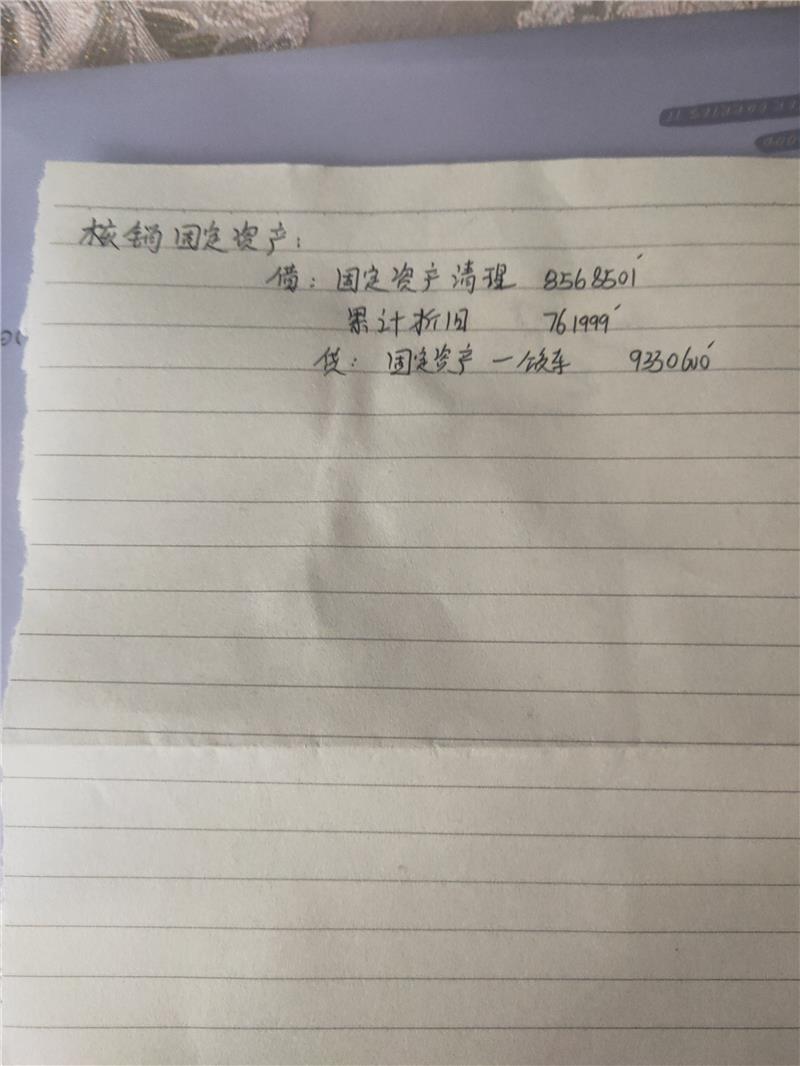 核销固定资产:
借: 固定资产清理 8568501
累计折旧 761999
贷: 固定资产一饭车 9330600